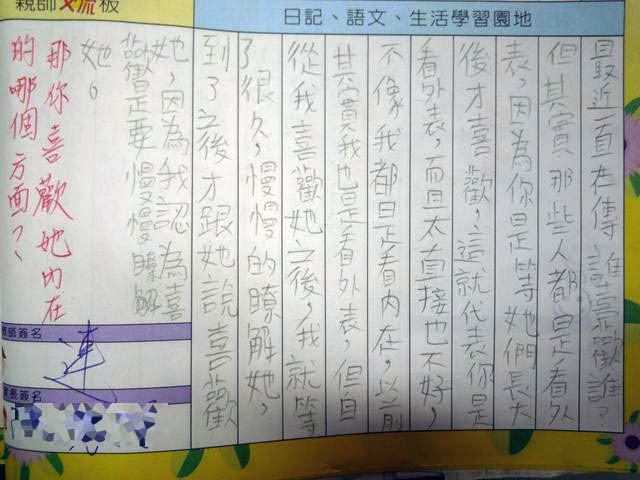 親師交流板
日記、語文、生活學習園地
最近一直在傳誰喜歡誰?
但其實那些人都是看外
表,因為你是等她們長大
後才喜歡,這就代表你是
看外表,而且太直接也不好,
不像我都是看內在,以前
其實我也是看外表,但自
從我喜歡她之後,我就等
了很久,慢慢的瞭解她,
到了之後才跟她說喜歡
她,因為我認為喜
歡是要慢慢瞭解
她。
那你喜歡她內在
的哪個方面?
教師簽名
連
家長簽名